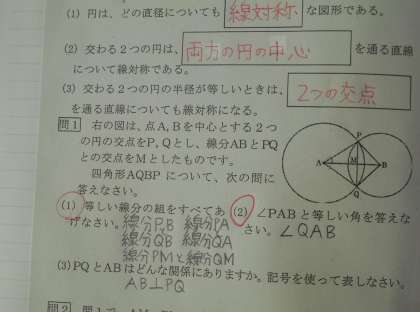 (1) 円は、どの直径についても 線対称 な図形である。
(2) 交わる2つの円は、 両方の円の中心 を通る直線
について線対称である。
(3) 交わる2つの円の半径が等しいときは、 2つの交点
を通る直線についても線対称になる。
問1 右の図は、点A, Bを中心とする2つ
の円の交点をP, Qとし、線分ABとPQ
との交点をMとしたものです。
四角形AQBPについて、次の問に
答えなさい。
P
A
M
B
Q
(1) 等しい線分の組をすべてあ
げなさい。線分P,B 線分PA
線分QB 線分QA
線分PMと線分QM
(2) ∠PABと等しい角を答えな
さい。∠QAB
(3) PQとABはどんな関係にありますか。記号を使って表しなさい。
AB⊥PQ
問2